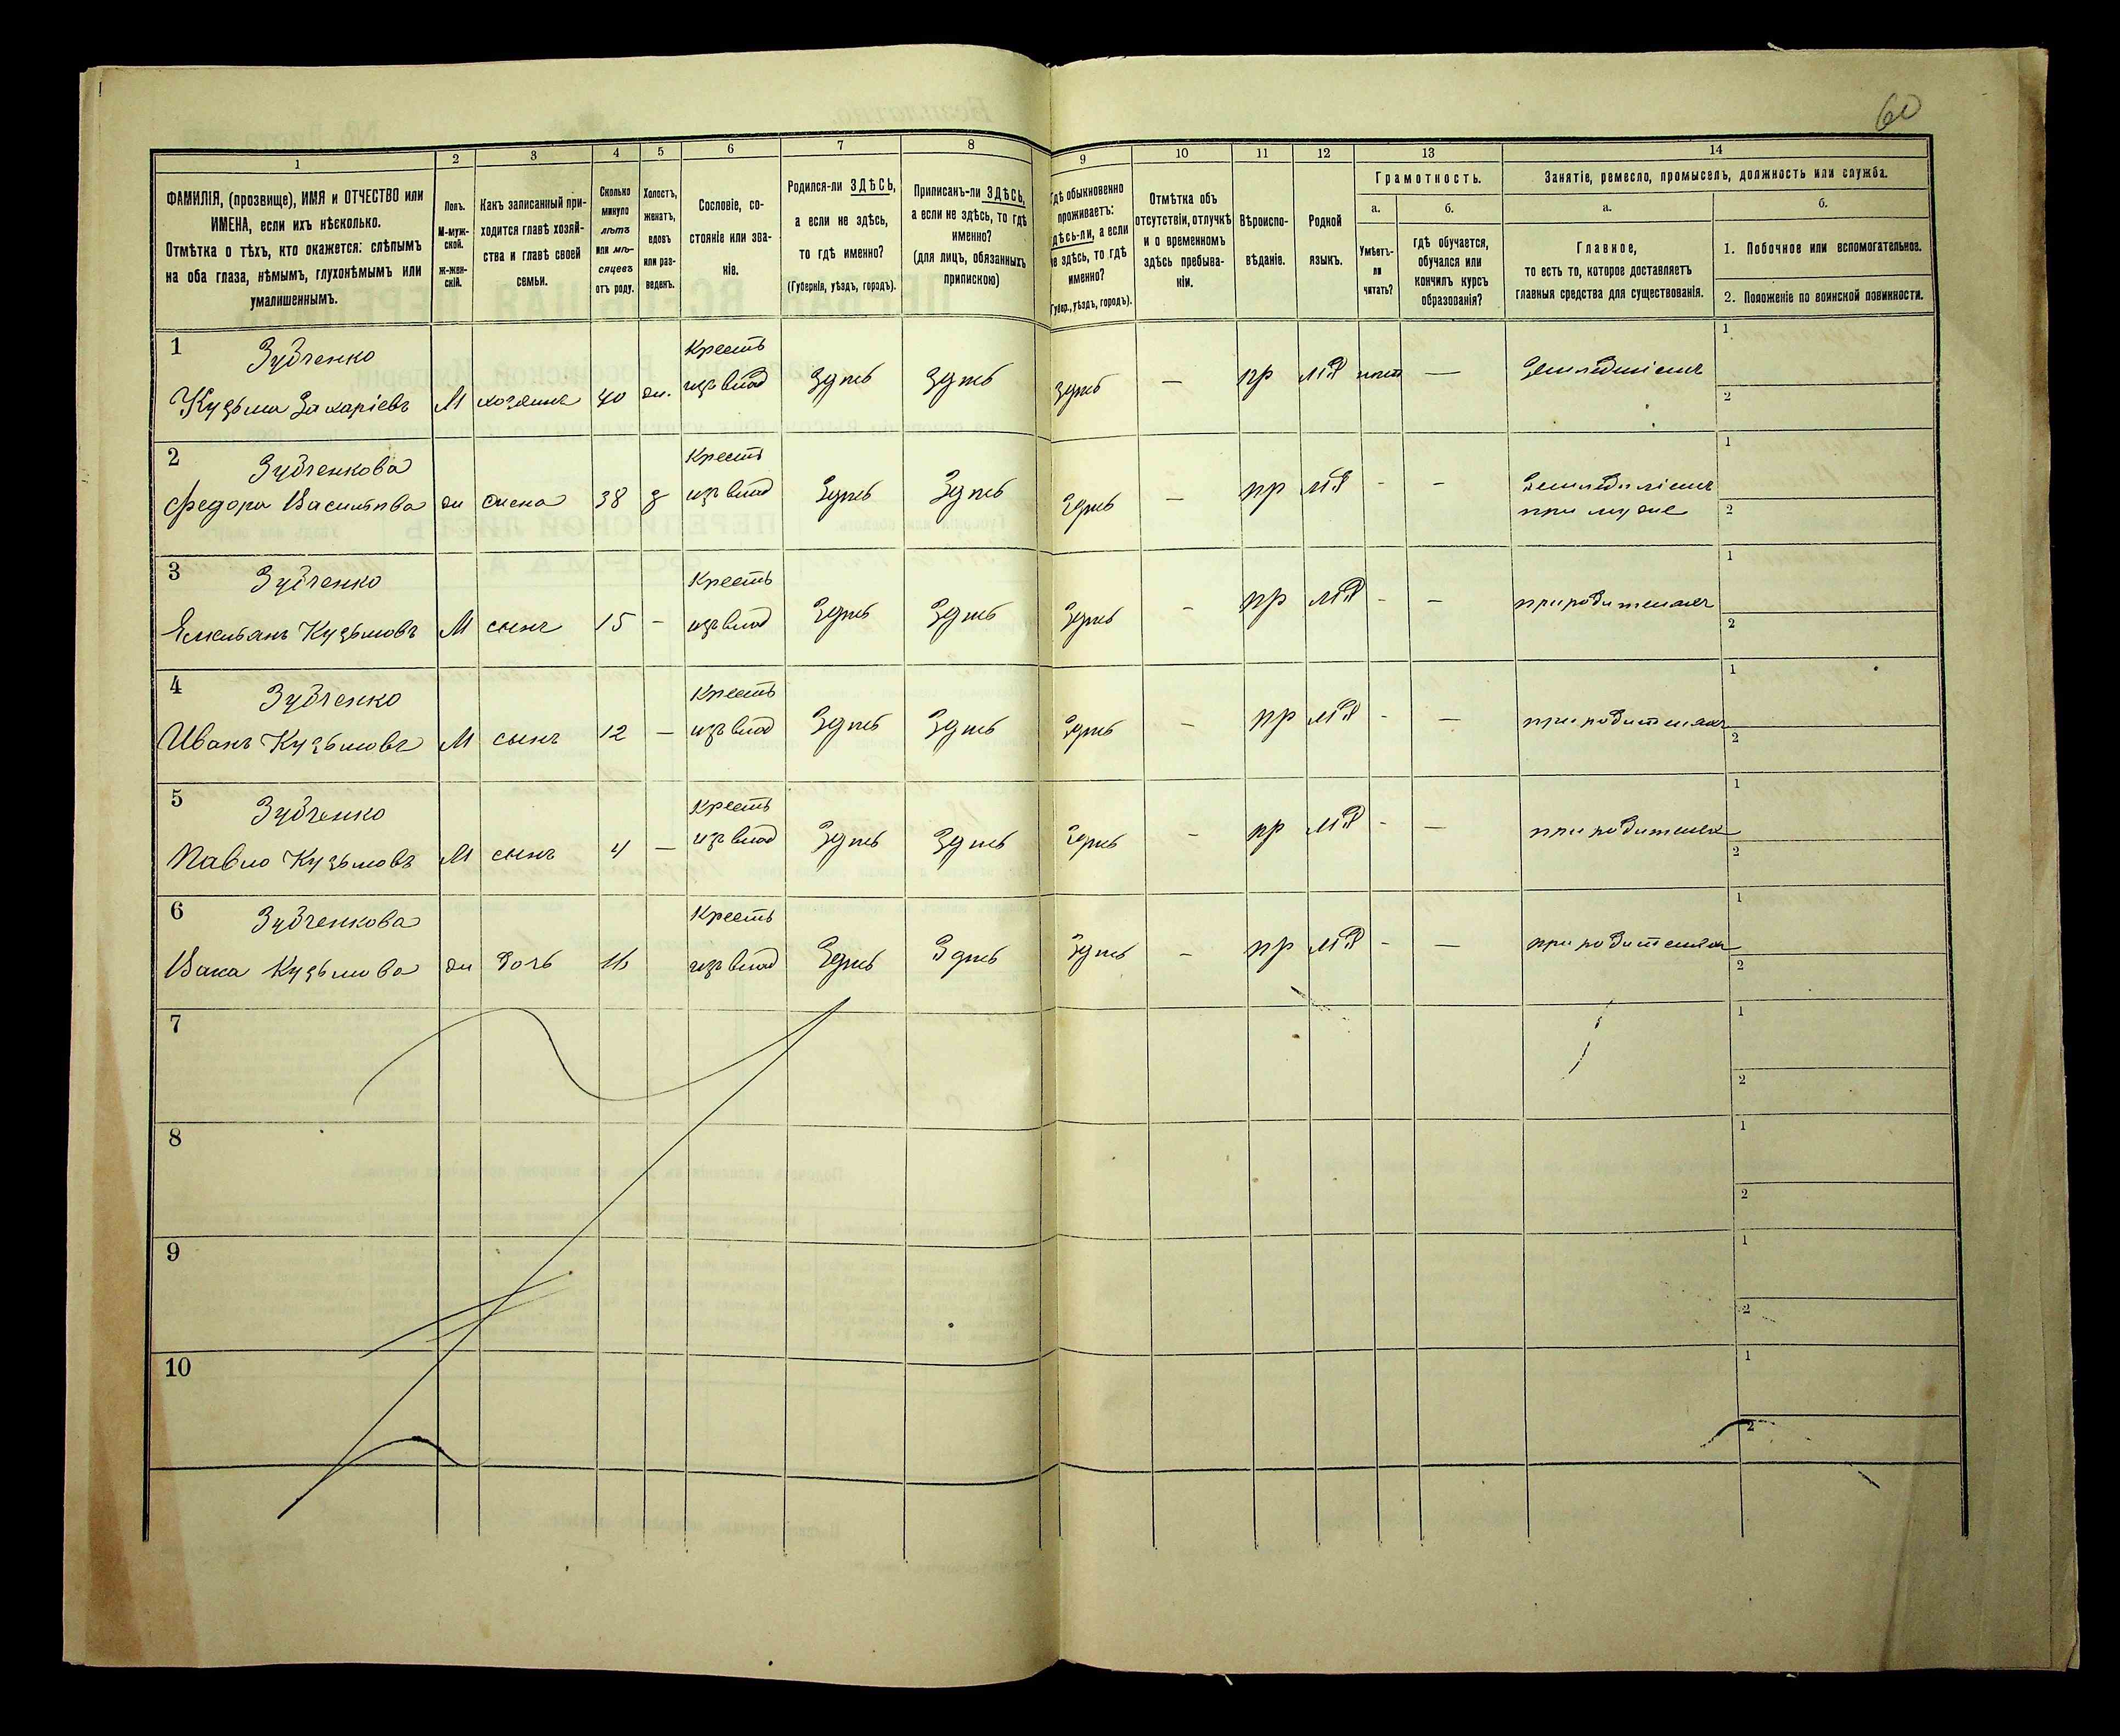 60
1 2 3 4 5 6 7 8 9 10 11 12 13 14
ФАМИЛІЯ, (прозвище), ИМЯ и ОТЧЕСТВО или
ИМЕНА, если ихъ нѣсколько.
Отмѣтка о тѣхъ, кто окажется: слѣпымъ
на оба глаза, нѣмымъ, глухонѣмымъ или
умалишеннымъ.
Полъ.
М-муж-
ской.
Ж-жен-
скій.
Какъ записанный при-
ходится главѣ хозяй-
ства и главѣ своей
семьи.
Сколько
минуло
лѣтъ
или мѣ-
сяцевъ
отъ роду.
Холостъ,
женатъ,
вдовъ
или раз-
веденъ.
Сословіе, со-
стояніе или зва-
ніе.
Родился-ли ЗДѢСЬ,
а если не здѣсь,
то гдѣ именно?
(Губернія, уѣздъ, городъ).
Приписанъ-ли ЗДѢСЬ,
а если не здѣсь, то гдѣ
именно?
(для лицъ, обязанныхъ
припискою)
Гдѣ обыкновенно
проживаетъ:
здѣсь-ли, а если
не здѣсь, то гдѣ
именно?
(Губер., уѣздъ, городъ).
Отмѣтка объ
отсутствіи, отлучкѣ
и о временномъ
здѣсь пребыва-
ніи.
Вѣроиспо-
вѣданіе.
Родной
языкъ.
Грамотность.
а.
Умѣетъ-
ли
читать?
б.
гдѣ обучается,
обучался или
кончилъ курсъ
образованія?
Занятіе, ремесло, промыселъ, должность или служба.
а.
Главное,
то есть то, которое доставляетъ
главныя средства для существованія.
б.
1. Побочное или вспомогательное.
2. Положеніе по воинской повинности.
1 Зубченко Кресть 1
Кузьма Захаріевъ М хозяинъ 40 ж. изъ влад Здѣсь Здѣсь здѣсь — пр МР нѣт — Земледѣліемъ
2
2 Зубченкова Кресть 1
Федора Васильева ж жена 38 з изъ влад Здѣсь Здѣсь Здѣсь — пр МР - - Земледѣліемъ
при мужѣ 2
3 Зубченко Кресть 1
Емельянъ Кузьмовъ М сынъ 15 — изъ влад Здѣсь Здѣсь Здѣсь - пр МР - - при родителяхъ
2
4 Зубченко Кресть 1
Иванъ Кузьмовъ М сынъ 12 — изъ влад Здѣсь Здѣсь Здѣсь - пр МР - — при родителяхъ
2
5 Зубченко Кресть 1
Павло Кузьмовъ М сынъ 4 — изъ влад Здѣсь Здѣсь Здѣсь - пр МР - — при родителях
2
6 Зубченкова Кресть 1
Кузьмова ж дочь изъ влад Здѣсь Здѣсь Здѣсь - пр МР - — при родителях
2
7 1
2
8 1
2
9 1
2
10 1
2